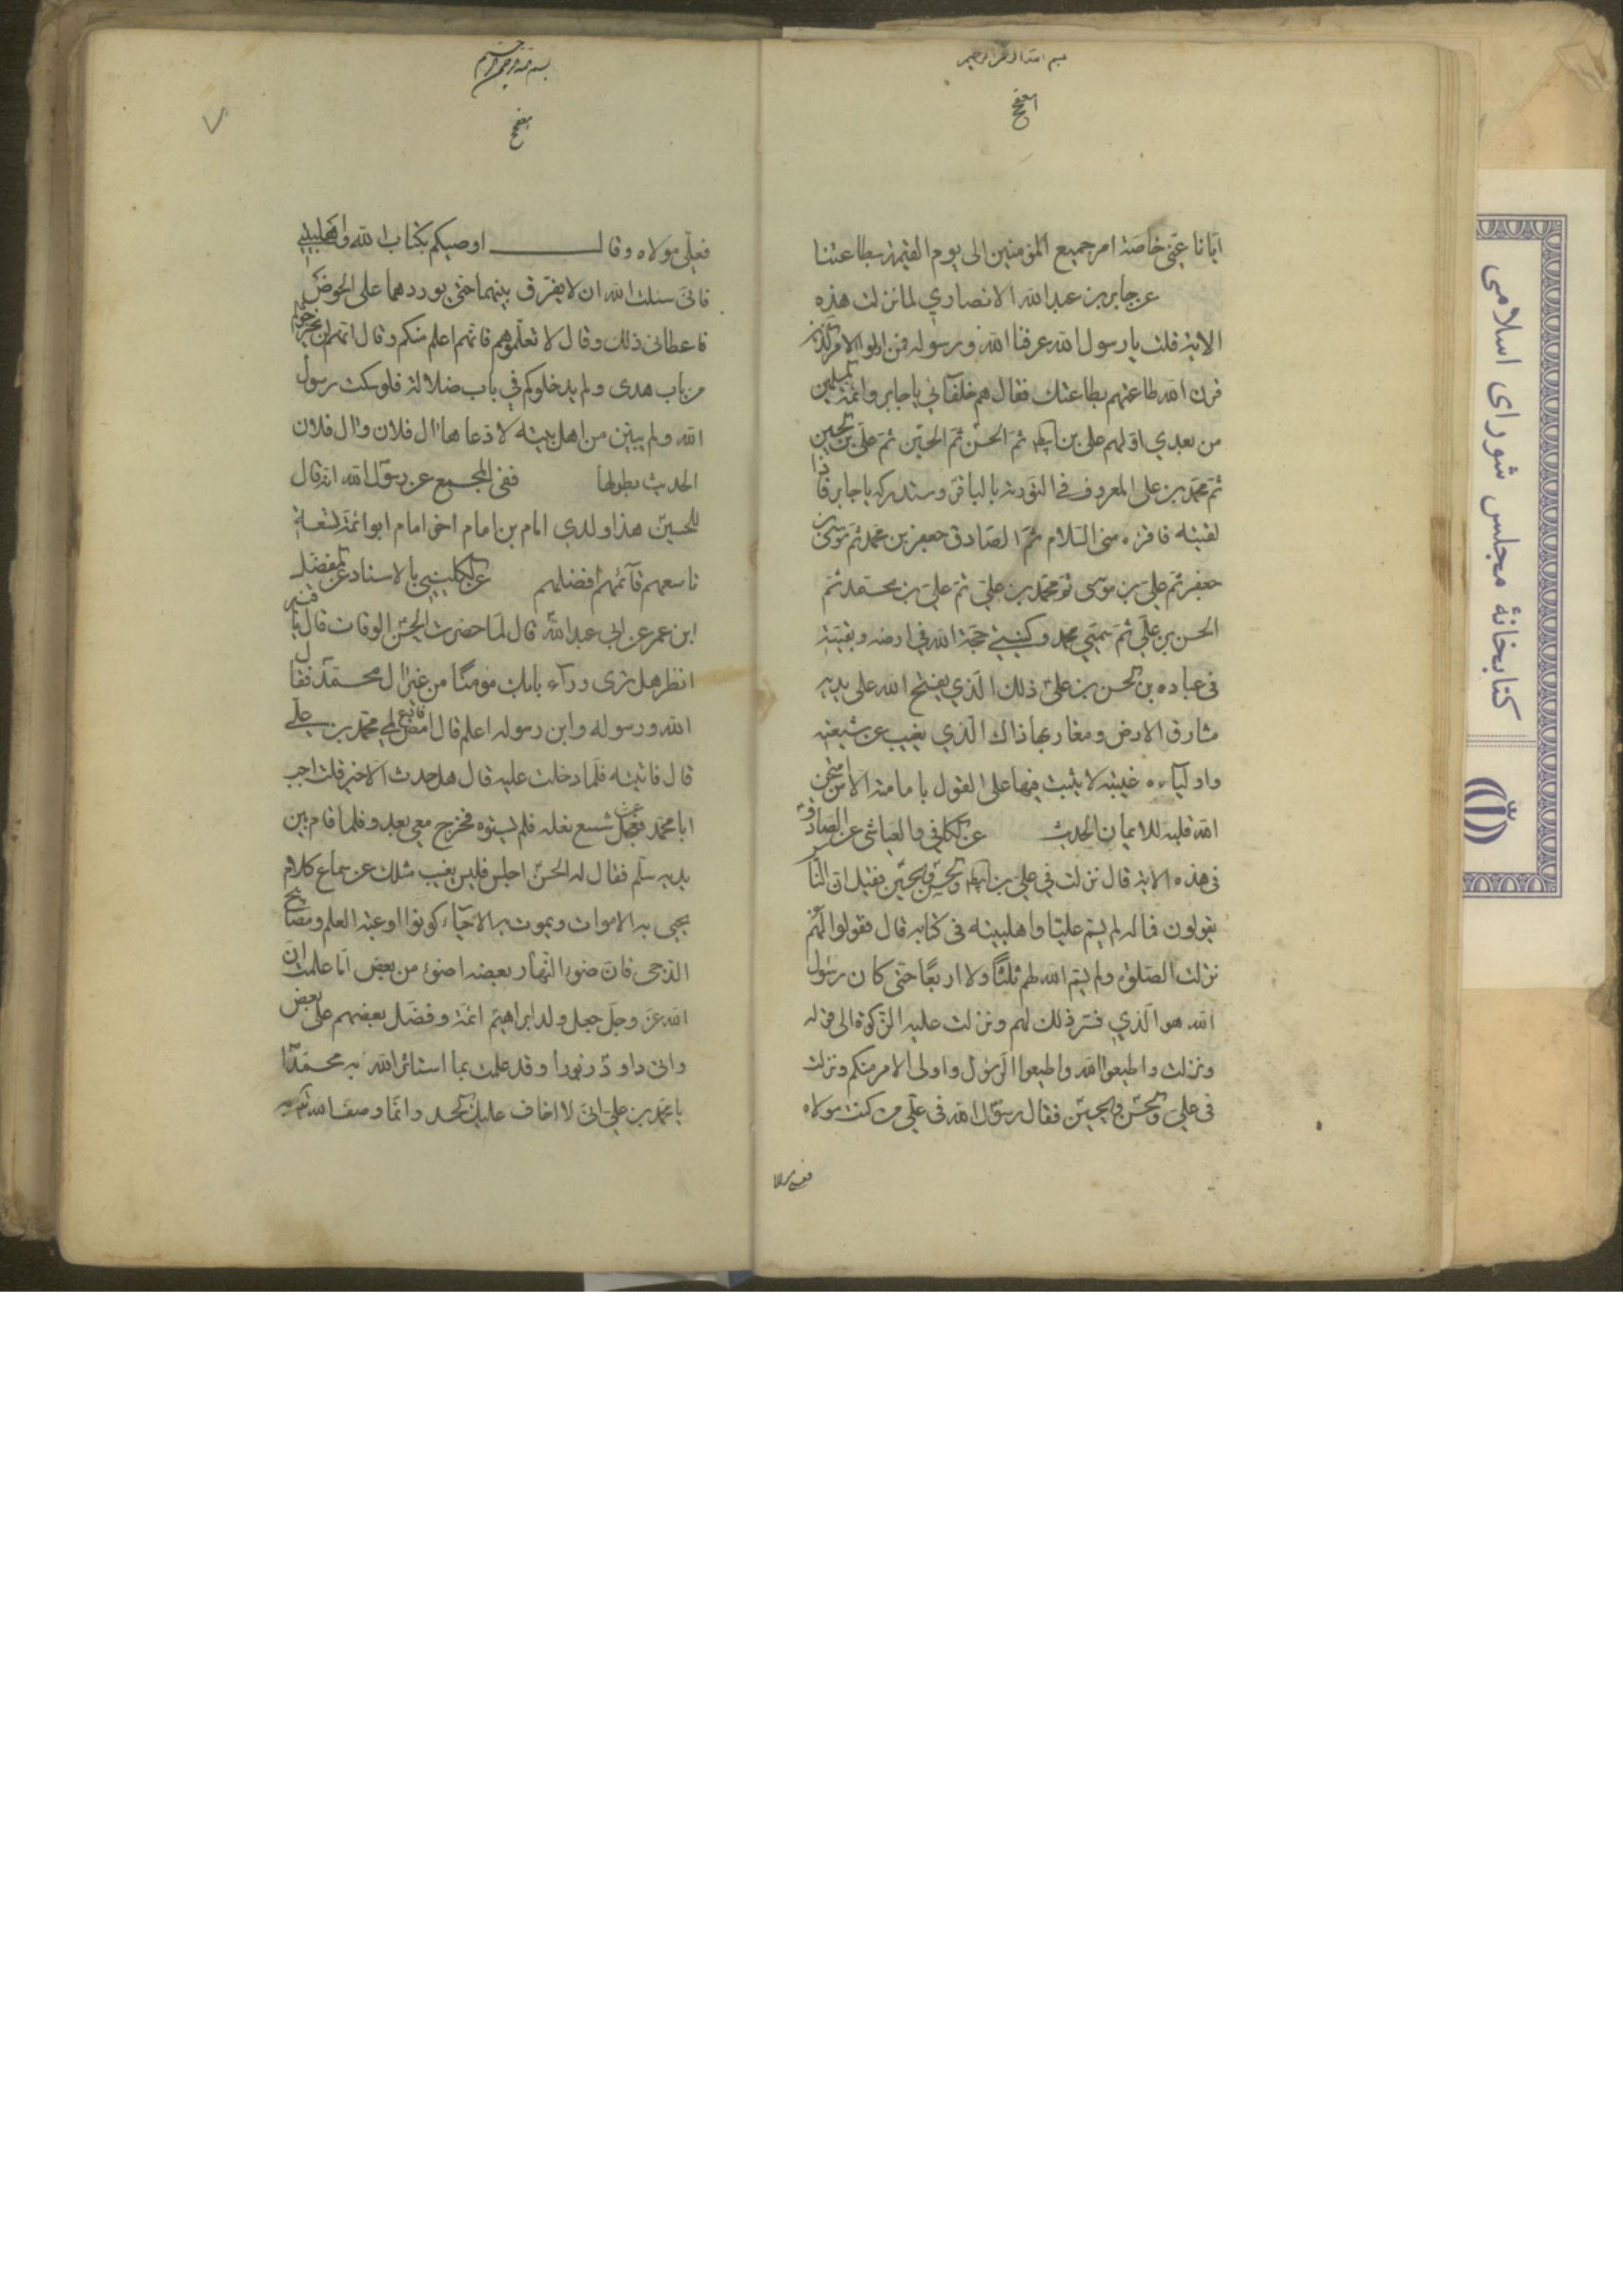 بسم الله الرحمن الرحيم
ايانا عنى خاصة امر جميع المؤمنين الى يوم القيمة بطاعتنا
عن جابر بن عبدالله الانصاري لما نزلت هذه
الاية قلت يا رسول الله عرفنا الله ورسوله فمن اولوا الامر الذين
قرن الله طاعتهم بطاعتك فقال هم خلفآئي يا جابر وائمة المسلمين
من بعدي اولهم على بن ابيطالب ثم الحسن ثم الحسين ثم على بن الحسين
ثم محمد بن على المعروف في التورية بالباقر وستدركه يا جابر فاذا
لقيته فاقرءه منى السلام ثم الصادق جعفر بن محمد ثم موسى بن
جعفر ثم على بن موسى ثم محمد بن على ثم على بن محمد ثم
الحسن بن على ثم سميي محمد وكنيي حجة الله في ارضه وبقيته
في عباده بن الحسن بن على ذلك الذي يفتح الله على يديه
مشارق الارض ومغاربها ذاك الذي يغيب عن شيعته
واوليآءه غيبة لا يثبت فيها على القول بامامته الا من امتحن
الله قلبه للايمان الحديث عن الكافي والعياشى عن الصادق
في هذه الاية قال نزلت في على بن ابيطالب والحسن والحسين فقيل ان الناس
يقولون فما له لم يسم عليا واهلبيته في كتابه قال فقولوا لهم
نزلت الصلوة ولم يسم الله لهم ثلثا ولا اربعا حتى كان رسول
الله هو الذي فسر ذلك لهم ونزلت عليه الزكوة الى قوله
ونزلت واطيعوا الله واطيعوا الرسول واولى الامر منكم ونزلت
في على والحسن والحسين فقال رسول الله في على من كنت مولاه
فعلي مولاه
بسم الله الرحمن الرحيم
٧
فعلي مولاه وقال اوصيكم بكتاب الله واهلبيتي
فانى سئلت الله ان لا يفرق بينهما حتى يوردهما على الحوض
فاعطانى ذلك وقال لا تعلموهم فانهم اعلم منكم وقال انهم لن يخرجوكم
من باب هدى ولم يدخلوكم في باب ضلالة فلو سكت رسول
الله ولم يبين من اهل بيته لادعاها ال فلان وال فلان
الحديث بطولها ففى المجمع عن رسول الله انه قال
للحسين هذا ولدي امام بن امام اخو امام ابو ائمة تسعة
تاسعهم قآئمهم افضلهم عن الكليني بالاسناد عن المفضل
ابن عمر عن ابى عبدالله قال لما حضرت الحسن الوفات قال يا قنبر
انظر هل ترى ورآء بابك مؤمنا من غير ال محمد فقال
الله ورسوله وابن رسوله اعلم قال امض فادع لي محمد بن على
قال فاتيته فلما دخلت عليه قال هل حدث الا خير قلت اجب
ابا محمد فعجل عن شسع نعله فلم يسوه فخرج معي يعدو فلما قام بين
يديه سلم فقال له الحسن اجلس فليس يغيب مثلك عن سماع كلام
يحيى به الاموات ويموت به الاحيآء كونوا اوعية العلم ومصابيح
الدجى فان ضوء النهار بعضه اضوء من بعض اما علمت ان
الله عز وجل جعل ولد ابراهيم ائمة وفضل بعضهم على بعض
واتى داود زبورا وقد علمت بما استاثر الله به محمدا
يا محمد بن على انى لا اخاف عليك الحسد وانما وصف الله به
كتابخانهٔ مجلس شوراى اسلامى